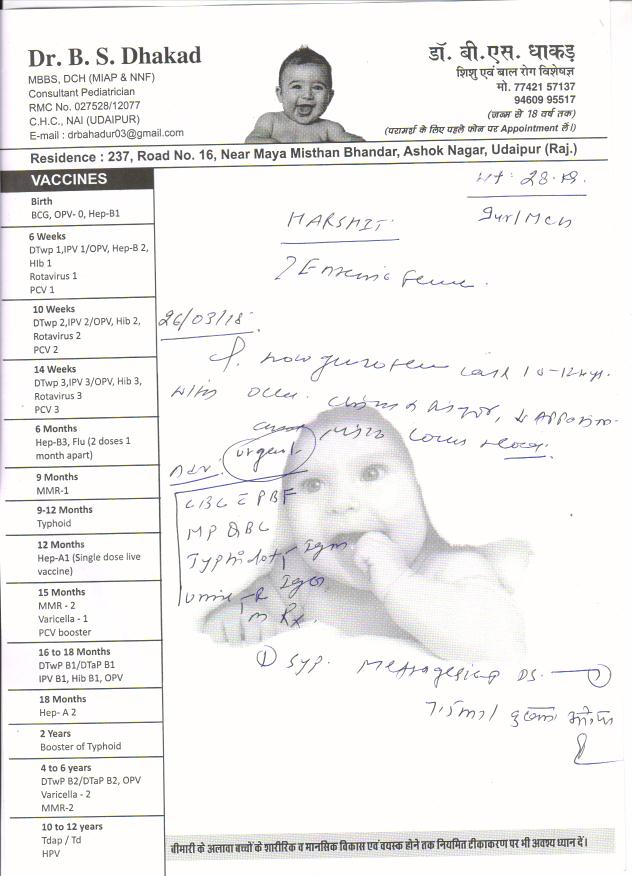 Dr. B. S. Dhakad
MBBS, DCH (MIAP & NNF)
Consultant Pediatrician
RMC No. 027528/12077
C.H.C., NAI (UDAIPUR)
E-mail : drbahadur03@gmail.com
डॉ. बी.एस. धाकड़
शिशु एवं बाल रोग विशेषज्ञ
मो. 77421 57137
94609 95517
(जन्म से 18 वर्ष तक)
(परामर्श के लिए पहले फोन पर Appointment लें।)
Residence : 237, Road No. 16, Near Maya Misthan Bhandar, Ashok Nagar, Udaipur (Raj.)
VACCINES
Birth
BCG, OPV- 0, Hep-B1
6 Weeks
DTwp 1,IPV 1/OPV, Hep-B 2,
HIb 1
Rotavirus 1
PCV 1
10 Weeks
DTwp 2,IPV 2/OPV, Hib 2,
Rotavirus 2
PCV 2
14 Weeks
DTwp 3,IPV 3/OPV, Hib 3,
Rotavirus 3
PCV 3
6 Months
Hep-B3, Flu (2 doses 1
month apart)
9 Months
MMR-1
9-12 Months
Typhoid
12 Months
Hep-A1 (Single dose live
vaccine)
15 Months
MMR - 2
Varicella - 1
PCV booster
16 to 18 Months
DTwP B1/DTaP B1
IPV B1, Hib B1, OPV
18 Months
Hep- A 2
2 Years
Booster of Typhoid
4 to 6 years
DTwP B2/DTaP B2, OPV
Varicella - 2
MMR-2
10 to 12 years
Tdap / Td
HPV
wt: 28
HARSHIT
26/03/18
with
Adv. urgent
CBC PBF
MP QBC
Typhidot IgM
IgG
Urine R
Rx
① Syp. DS.
7.5ml
बीमारी के अलावा बच्चों के शारीरिक व मानसिक विकास एवं वयस्क होने तक नियमित टीकाकरण पर भी अवश्य ध्यान दें।